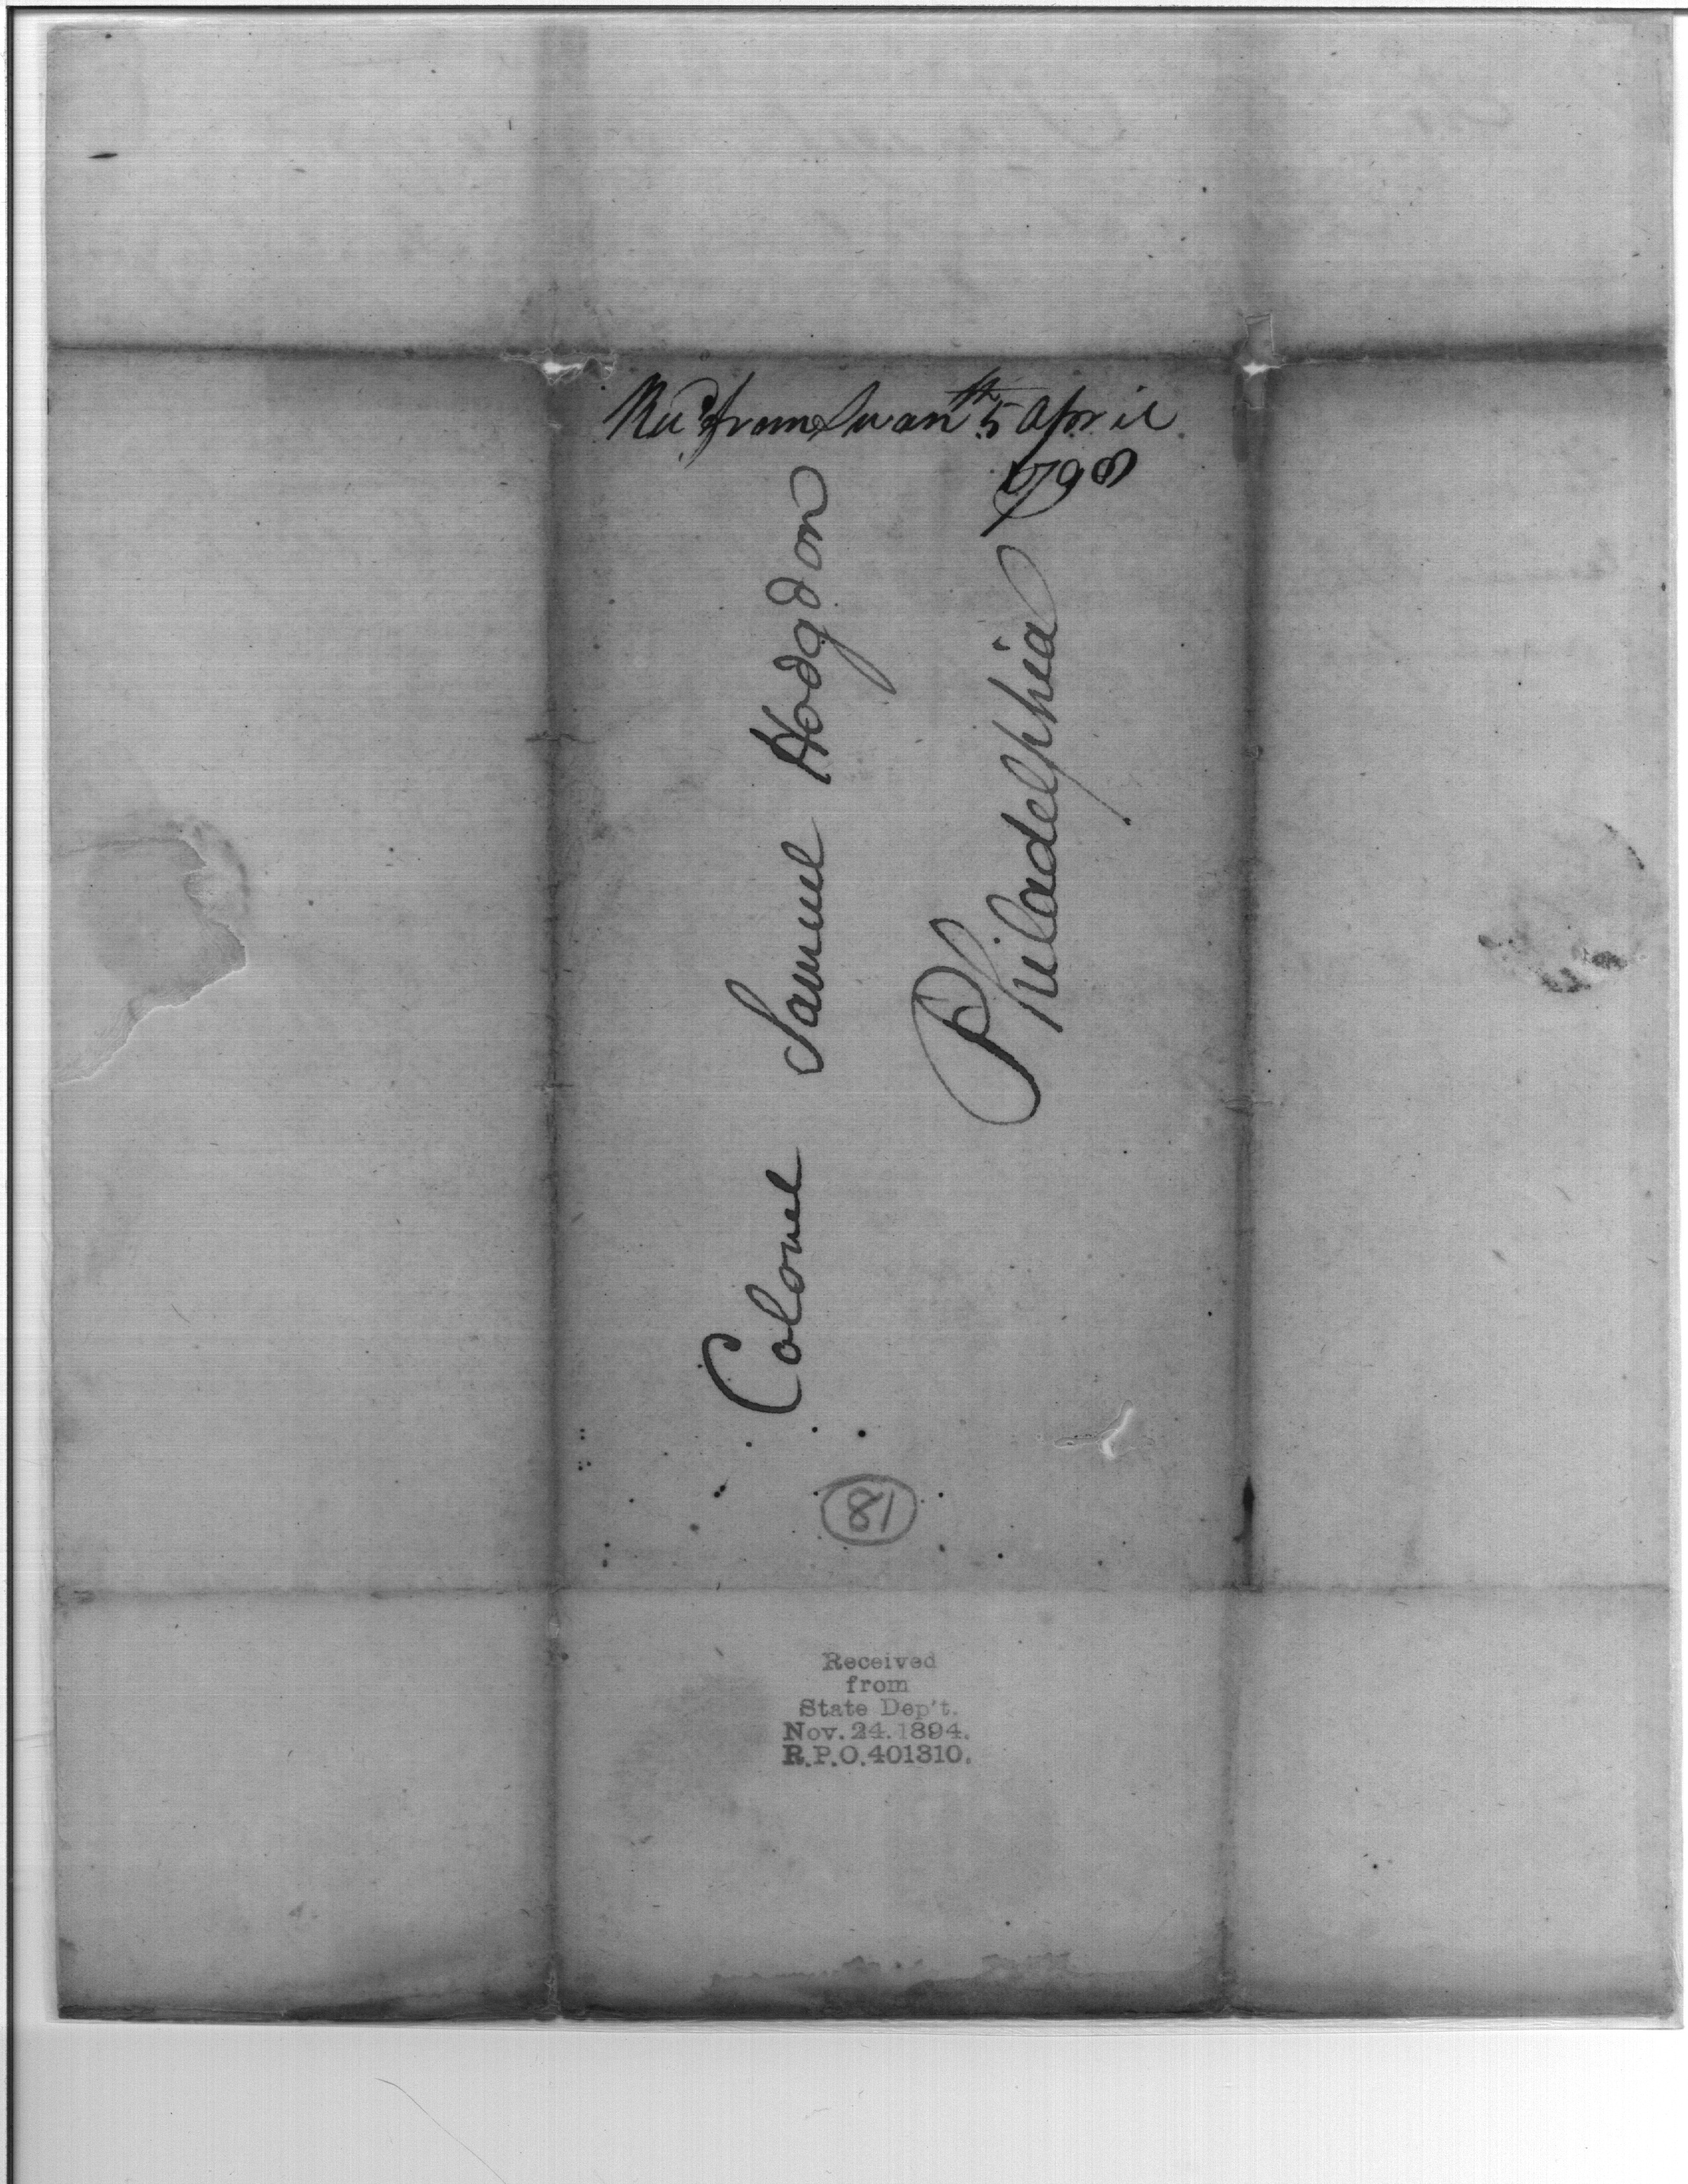 Rec'd from Swan 5th April
1798
Colonel Samuel Hodgdon
Philadelphia
81
Received
from
State Dep't.
Nov. 24. 1894.
R.P.O. 401310.